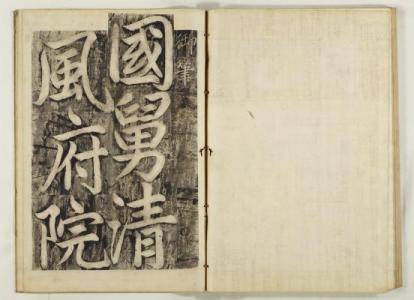 御筆
國舅清
風府院